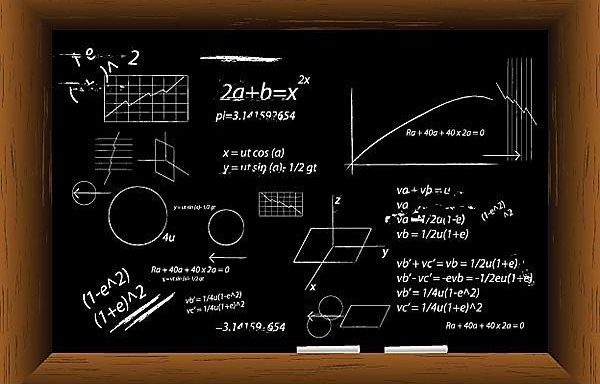 +e
^2
2a+b=x^2x
pi=3.141592654
Ra + 40a + 40 x 2a = 0
x = ut cos (a)
y = ut sin (a)- 1/2 gt
y = ut sin (a)- 1/2 gt
4u
z
y
x
va + vb = u
va
va = 1/2u(1-e)
vb = 1/2u(1+e)
(1-e^2)
^2
vb' + vc' = vb = 1/2u(1+e)
vb' - vc' = -evb = -1/2eu(1+e)
vb' = 1/4u(1-e^2)
vc' = 1/4u(1+e)^2
Ra + 40a + 40 x 2a = 0
y = ut sin (a)- 1/2 gt
(1-e^2)
(1+e)^2
vb' = 1/4u(1-e^2)
vc' = 1/4u(1+e)^2
-3.141592654
Ra + 40a + 40 x 2a = 0